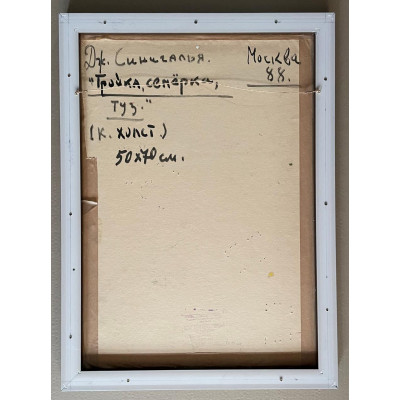 Дж. Синигалья. Москва
88.
"Тройка, семёрка,
туз."
(к. холст.)
50x70 см.